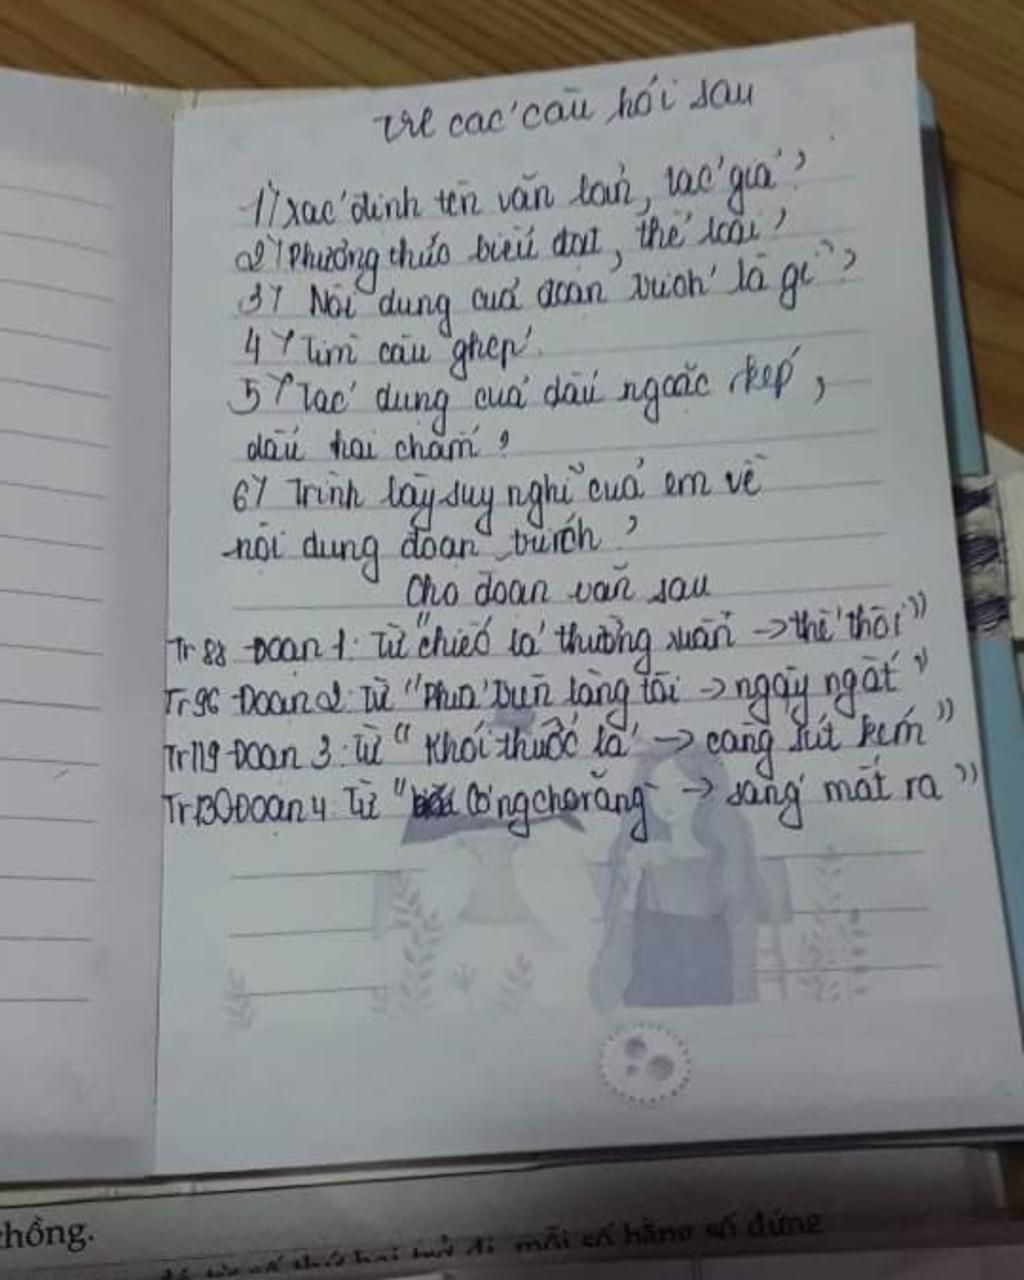 Trl các câu hỏi sau
1) Xác định tên văn bản, tác giả?
2) Phương thức biểu đạt, thể loại?
3) Nội dung của đoạn trích là gì?
4) Tìm câu ghép.
5) Tác dụng của dấu ngoặc kép,
dấu hai chấm?
6) Trình bày suy nghĩ của em về
nội dung đoạn trích?
Cho đoạn văn sau
Tr 88 Đoạn 1: Từ "chiếc lá thường xuân → thế thôi"
Tr 96 Đoạn 2 Từ "Phía trên làng tôi → ngây ngất"
Tr119 Đoạn 3: Từ "Khói thuốc lá → càng sút kém"
Tr130 Đoạn 4 Từ "Có ng cho rằng → sáng mắt ra"
hồng.
mỗi số hàng số đứng